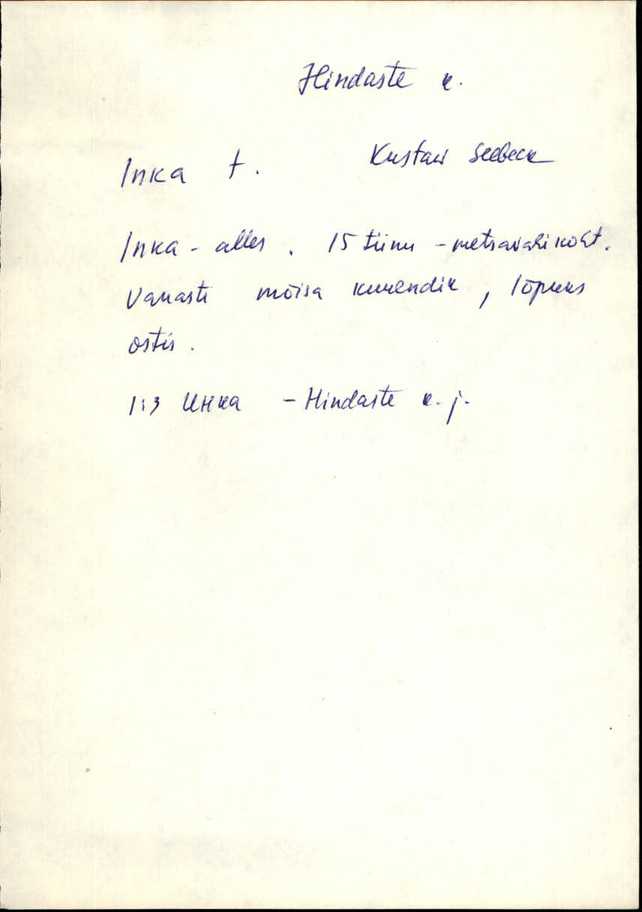 Hindaste k.
Inka t. Kustav Seebeck
Inka - alles. 15 tiinu - metsavahi koht.
Vanasti mõisa kuuendik, lõpuks
ostis.
1:3 Инка - Hindaste k. j.